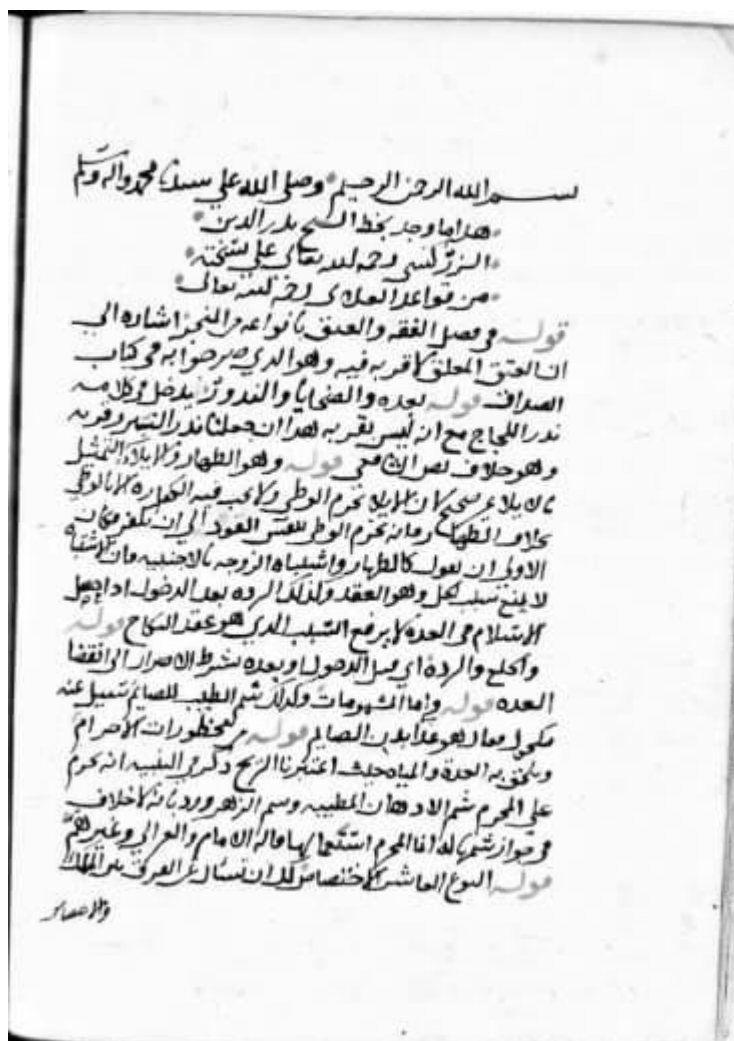 بسم الله الرحمن الرحيم وصلى الله علي سيدنا محمد واله وسلم
هذا ما وجد بخط الشيخ بدر الدين
الزركشي رحمه الله تعالى على نسخته
من قواعد العلائي رحمه الله تعالى
قوله في فصل الفقه والعتق بانواعه من النجز اشاره الي
ان العتق المعلق لا قربه فيه وهو الذي صرحوا به في كتاب
الصداق قوله بعده والضحايا والنذور يدخل في كلامه
نذر اللجاج مع انه ليس بقربه هذا ان جعلنا نذر التبرر قربه
وهو خلاف نص الشافعي قوله وهو الظهار والايلاء التمثيل
بالايلاء غير صحيح لان الايلا لا يحرم الوطي ولا يجب فيه الكفاره الا بالوطي
بخلاف الظهار فانه يحرم الوطي بنفس العود الي ان يكفر فكان
الاولي ان يقول كالظهار واشتباه الزوجه بالاجنبيه فان الاشتباه
لا يمنع سبب الحل وهو العقد وكذلك الرده بعد الدخول اذا حصل
الاسلام في العده لا يرفع السبب الذي هو عقد النكاح قوله
والخلع والردة اي قبل الدخول او بعده بشرط الاصرار الى انقضا
العده قوله واما المشمومات وكذلك شم الطيب للصايم سيل عنه
مكحول فقال هو غذا بدن الصايم قوله من محظورات الاحرام
ويلحق به العدة والمياه حيث اعتبرنا الريح ذكر في التنبيه انه يحرم
على المحرم شم الادهان المطيبه وشم الزهر ورد بانه لا خلاف
في جواز شمها له انما المحرم استعمالها قاله الامام والغزالي وغيرهم
قوله النوع العاشر الاختصاص لك ان تسال عن الفرق بين الملك
والاختصاص